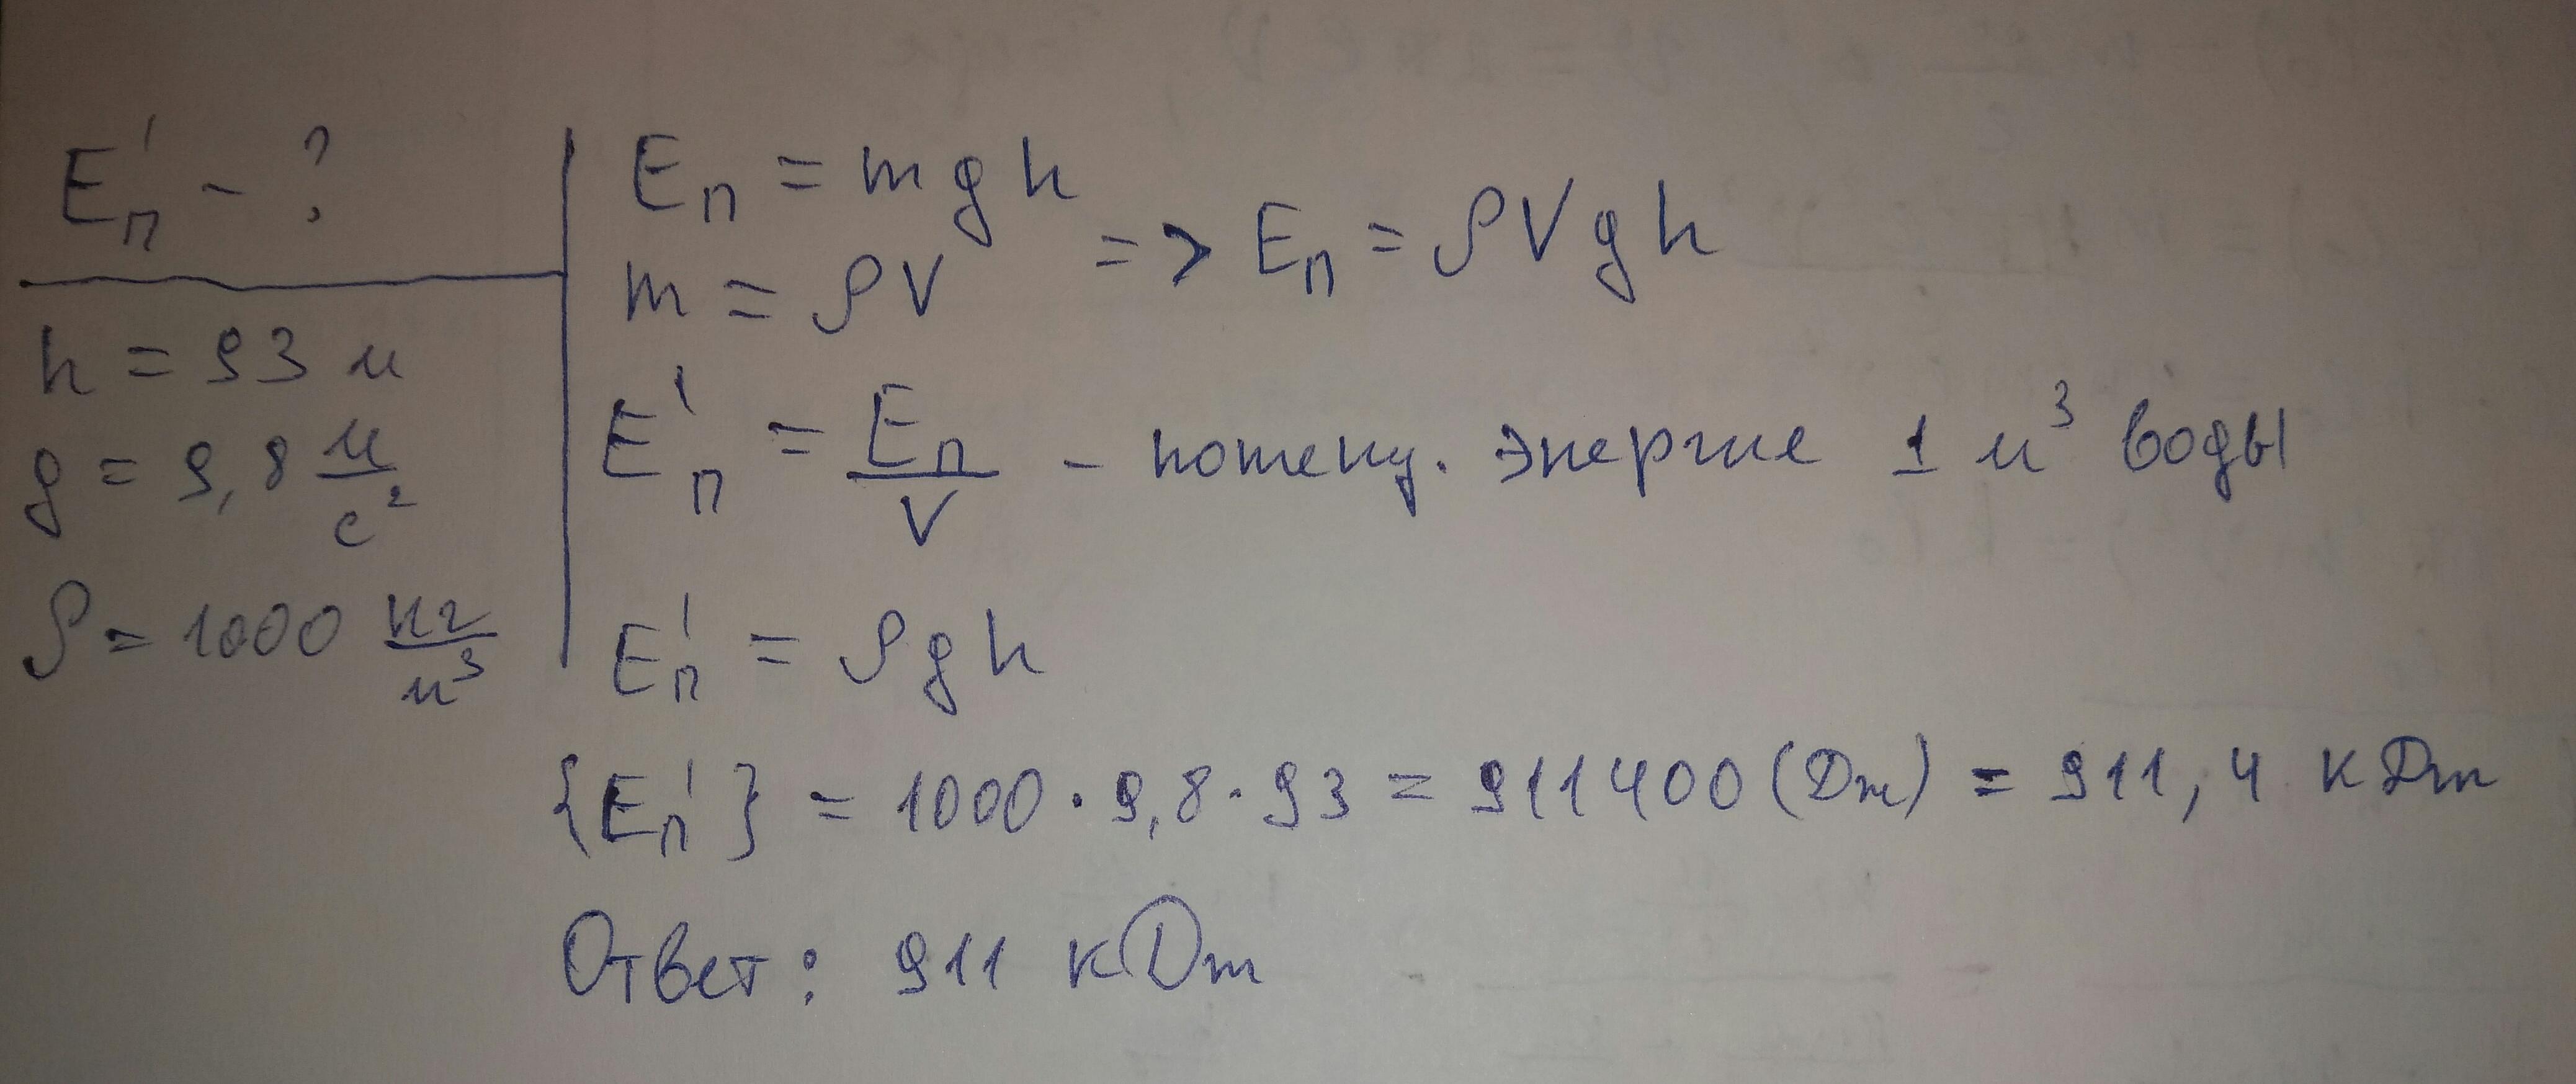 E'п - ?
h = 93 м
g = 9,8 м/с²
ρ = 1000 кг/м³
Eп = mgh
m = ρV
=> Eп = ρVgh
E'п = Eп/V - потенц. энергие 1 м³ воды
E'п = ρgh
{E'п} = 1000 · 9,8 · 93 = 911400 (Дж) = 911,4 кДж
Ответ: 911 кДж